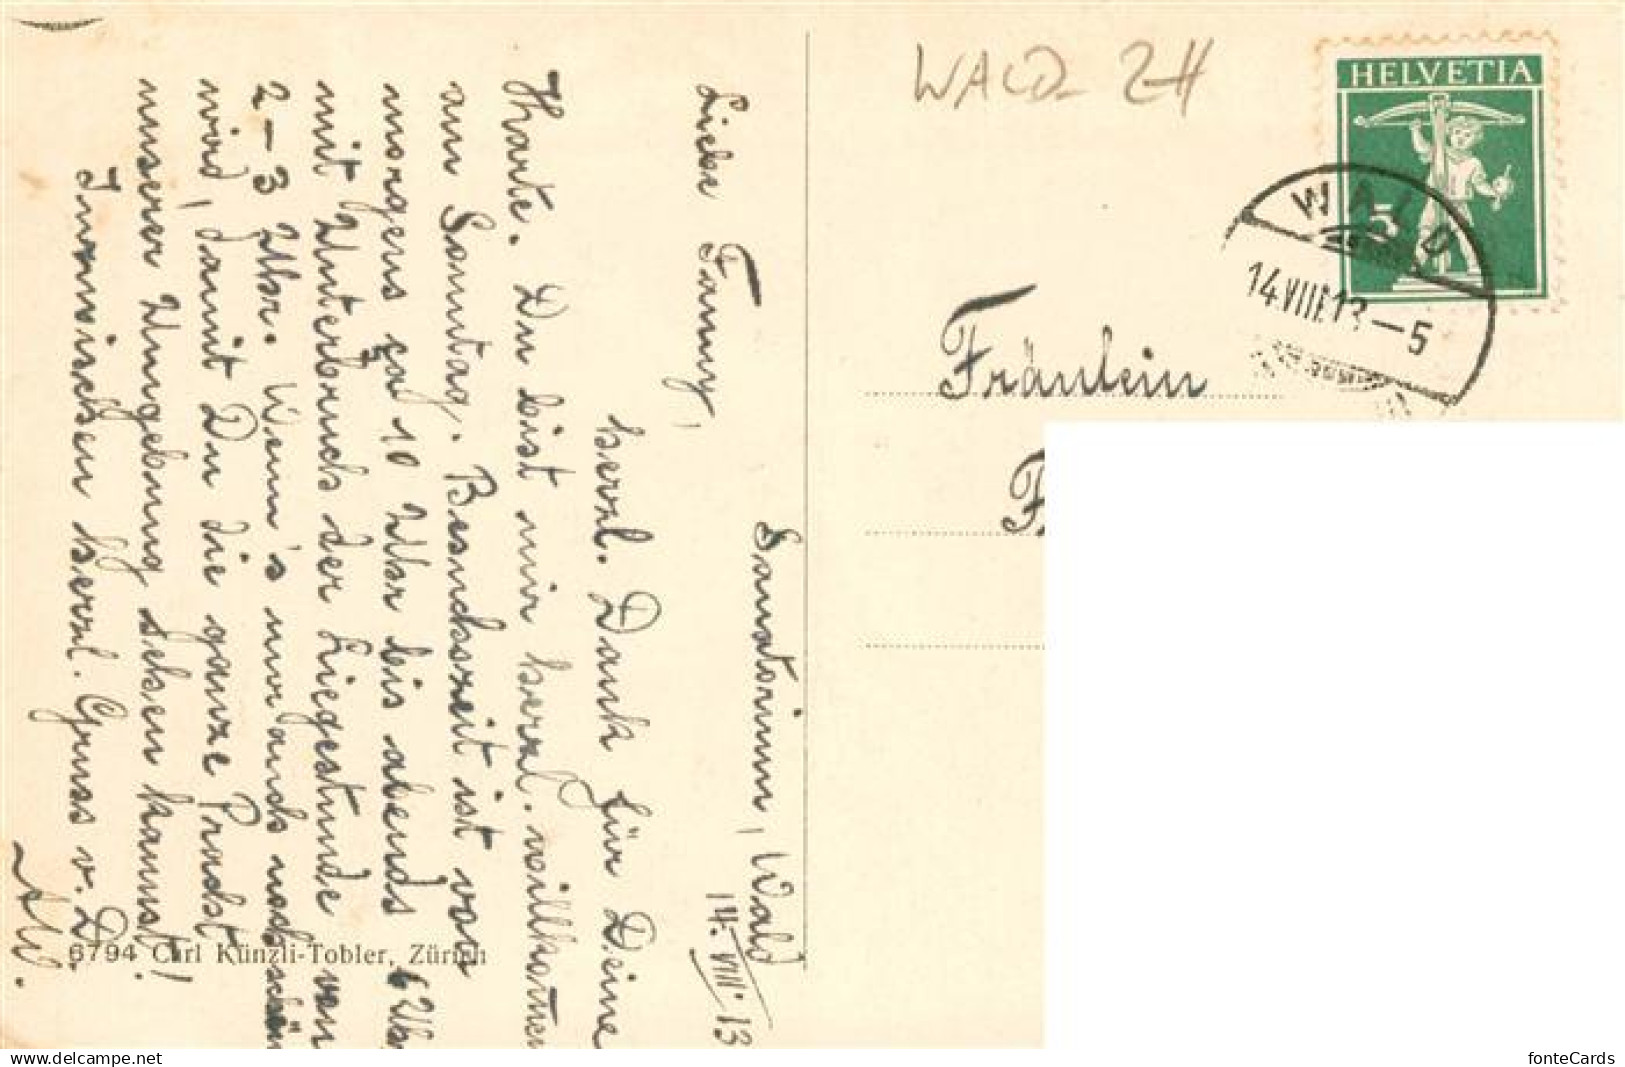 WALD ZH
HELVETIA
5
WALD
14.VIII.13–5
Fräulein
F
Sanatorium, Wald
14. VIII. 13
Liebe Fanny,
herzl. Dank für Deine
Kharte. Du bist mir herzl. willkommen
am Sonntag. Besuchszeit ist von
morgens ca 10 Uhr bis abends 6 Uhr
mit Unterbruch der Liegestunde von
2–3 Uhr. Wenn's nur auch noch schön
wird, damit Du die ganze Pracht
unserer Umgebung sehen kannst!
Inzwischen herzl. Gruss v. D.
6794 Carl Künzli-Tobler, Zürich
fonteCards